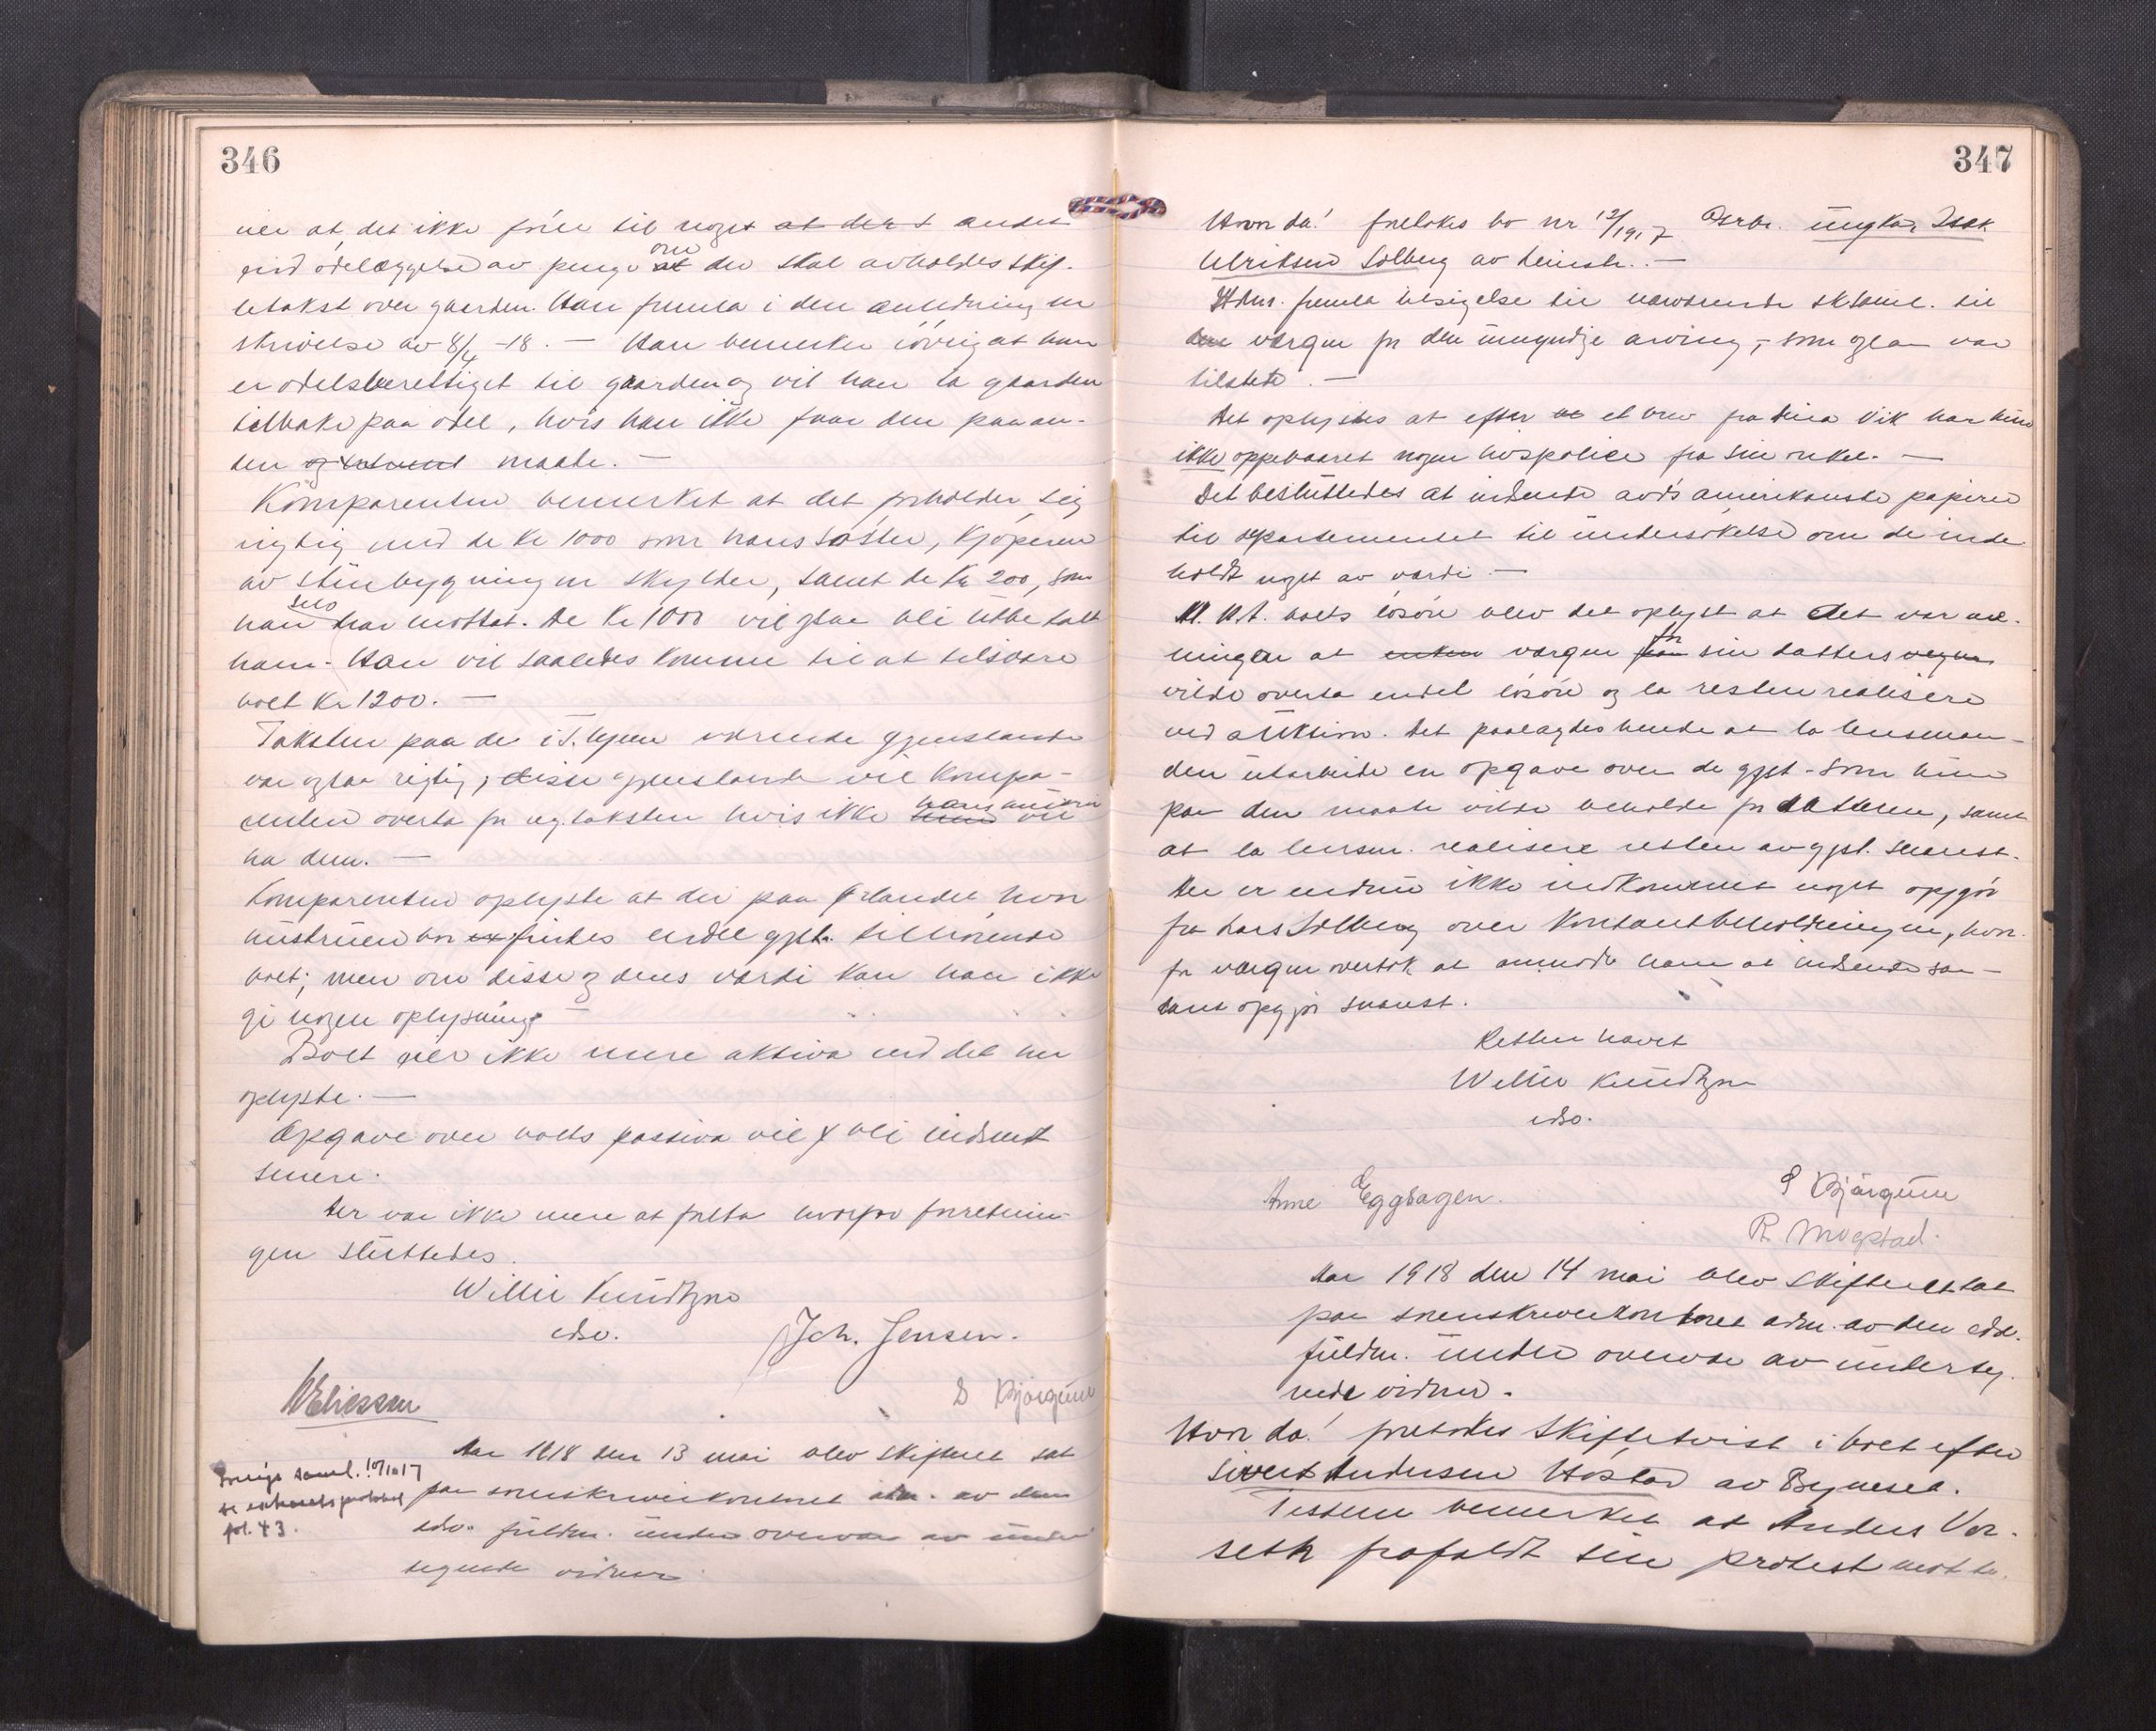 346
ner at det ikke fører til noget at det t andet
end ødelæggelse av penge at om der skal avholdes skif-
tetakst over gaarden. Han fremla i den anledning en
skrivelse av 8/4-18. — Han bemerker iøvrig at han
er odelsberettiget til gaarden og vil han ta gaarden
tilbake paa odel, hvis han ikke faar den paa an-
den maate. —
Komparenten bemerket at det forholder sig
rigtig med de Kr 1000 som hans søster, kjøperen
av stuebygningen skylder, samt de Kr 200, som
han selv har mottat. De Kr 1000 vil ogsaa bli utbetalt
ham. Han vil saaledes komme til at tilsvare
boet Kr 1200. —
Taksten paa de i T.hjem værende gjenstande
var ogsaa rigtig; disse gjenstande vil kompa-
renten overta for reg.taksten hvis ikke hans
ha dem. —
Komparenten oplyste at der paa Ørlandet hvor
hustruen bor findes endel gjst. tilhørende
boet; men om disse og deres værdi kan han ikke
gi nogen oplysning —
Boet eier ikke mere aktiva end det her
oplyste. —
Opgave over boets passiva vil bli indsendt
senere.
Der var ikke mere at foreta hvorfor forretnin-
gen sluttedes.
Willie Knudtzon
edsv.
Joh. Jensen.
Eliessen
S Bjørgum
Aar 1918 den 13 mai blev skifteret sat
paa sorenskriverkontoret adm. av den
edsv. fuldm. under overvær av under-
tegnede vidner
Forrige saml. 10/10 17
se extraretsprotokol
fol. 43.
347
Hvor da! foretokes bo nr 12/1917 Dødsbo. ungkar Isak
Ulriksen Solberg av Leinstr. —
Adm. fremla utsigelse til nærværende sksaml. til
vergen for den umyndige arving, — som ogsaa var
tilstede. —
Det oplystes at efter et brev fra Vik har hun
ikke oppebaaret nogen livspolice fra sin onkel. —
Det besluttedes at indsende avd's amerikanske papirer
til departementet til undersøkelse om de inde-
holdt noget av værdi —
M. H. t. boets løsøre blev det oplyst at det var me-
ningen at vergen for sin datters vegne
vilde overta endel løsøre og la resten realisere
ved auktion. Det paalagdes hende at la lensman-
den utarbeide en opgave over de gjst. som hun
paa den maate vilde beholde for datteren, samt
at la lensm. realisere resten av gjst. snarest.
Der er endnu ikke indkommet noget opgjør
fra Lars Solberg over kontantbeholdningen, hvor-
for vergen overtok at anmode ham at indsende saa-
dant opgjør snarest.
Retten hævet
Willie Knudtzon
edsv.
Anne Eggsagen.
S Bjørgum
R. Mogstad.
Aar 1918 den 14 mai blev skifteret sat
paa sorenskriverkontoret adm. av den edsv.
fuldm. under overvær av underteg-
nede vidner.
Hvor da! foretokes skiftetvist i boet efter
Sivert Andersen Høstad av Bynesset.
bemerket at Anders Ver-
seth frafaldt sin protest mot